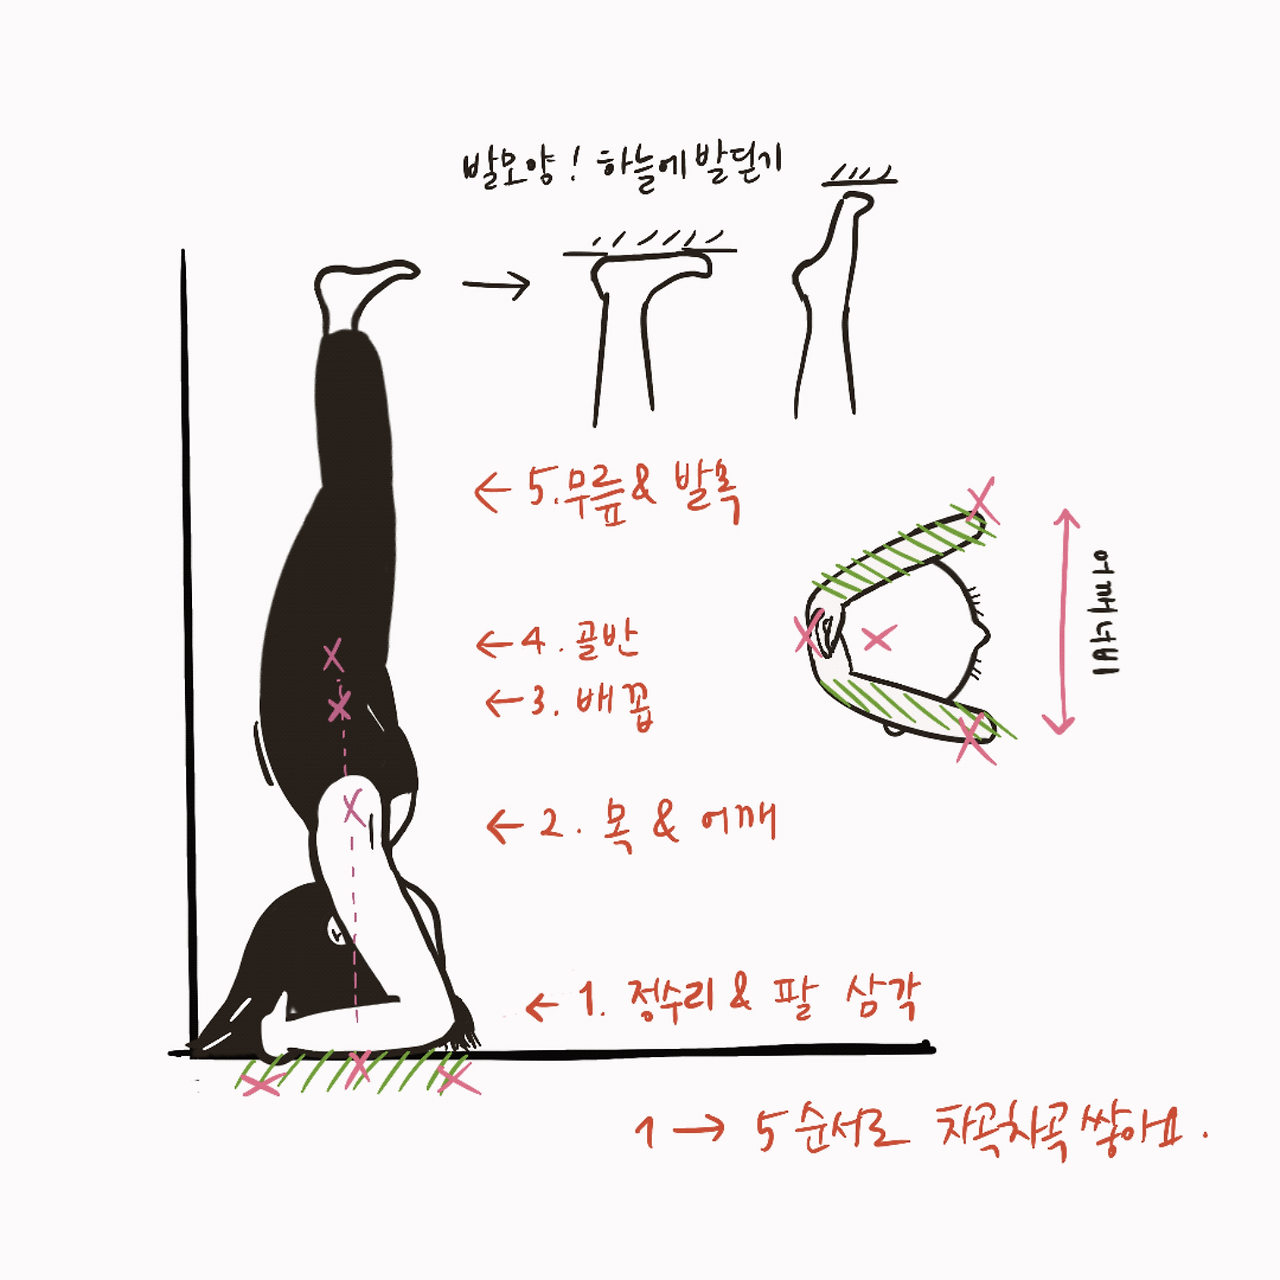 발모양! 하늘에 발딛기
← 5. 무릎 & 발목
← 4. 골반
← 3. 배꼽
어깨너비
← 2. 목 & 어깨
← 1. 정수리 & 팔 삼각
1 → 5 순서로 차곡차곡 쌓아요.